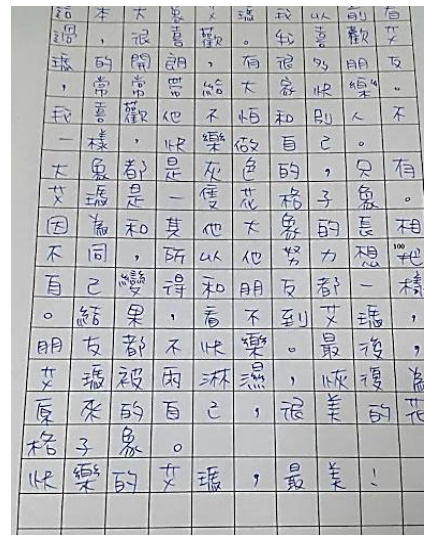 這本大象艾瑪我以前看
過，很喜歡。我喜歡艾
瑪的開朗，有很多朋友
，常常帶給大家快樂。
我喜歡他不怕和別人不
一樣，快樂做自己。
大象都是灰色的，只有
艾瑪是一隻花格子象。
因為和其他大象的長相
不同，所以他努力想把
100
自己變得和朋友都一樣
。結果，看不到艾瑪，
朋友都不快樂。最後，
艾瑪被雨淋濕，恢復為
原來的自己，很美的花
格子象。
快樂的艾瑪，最美！